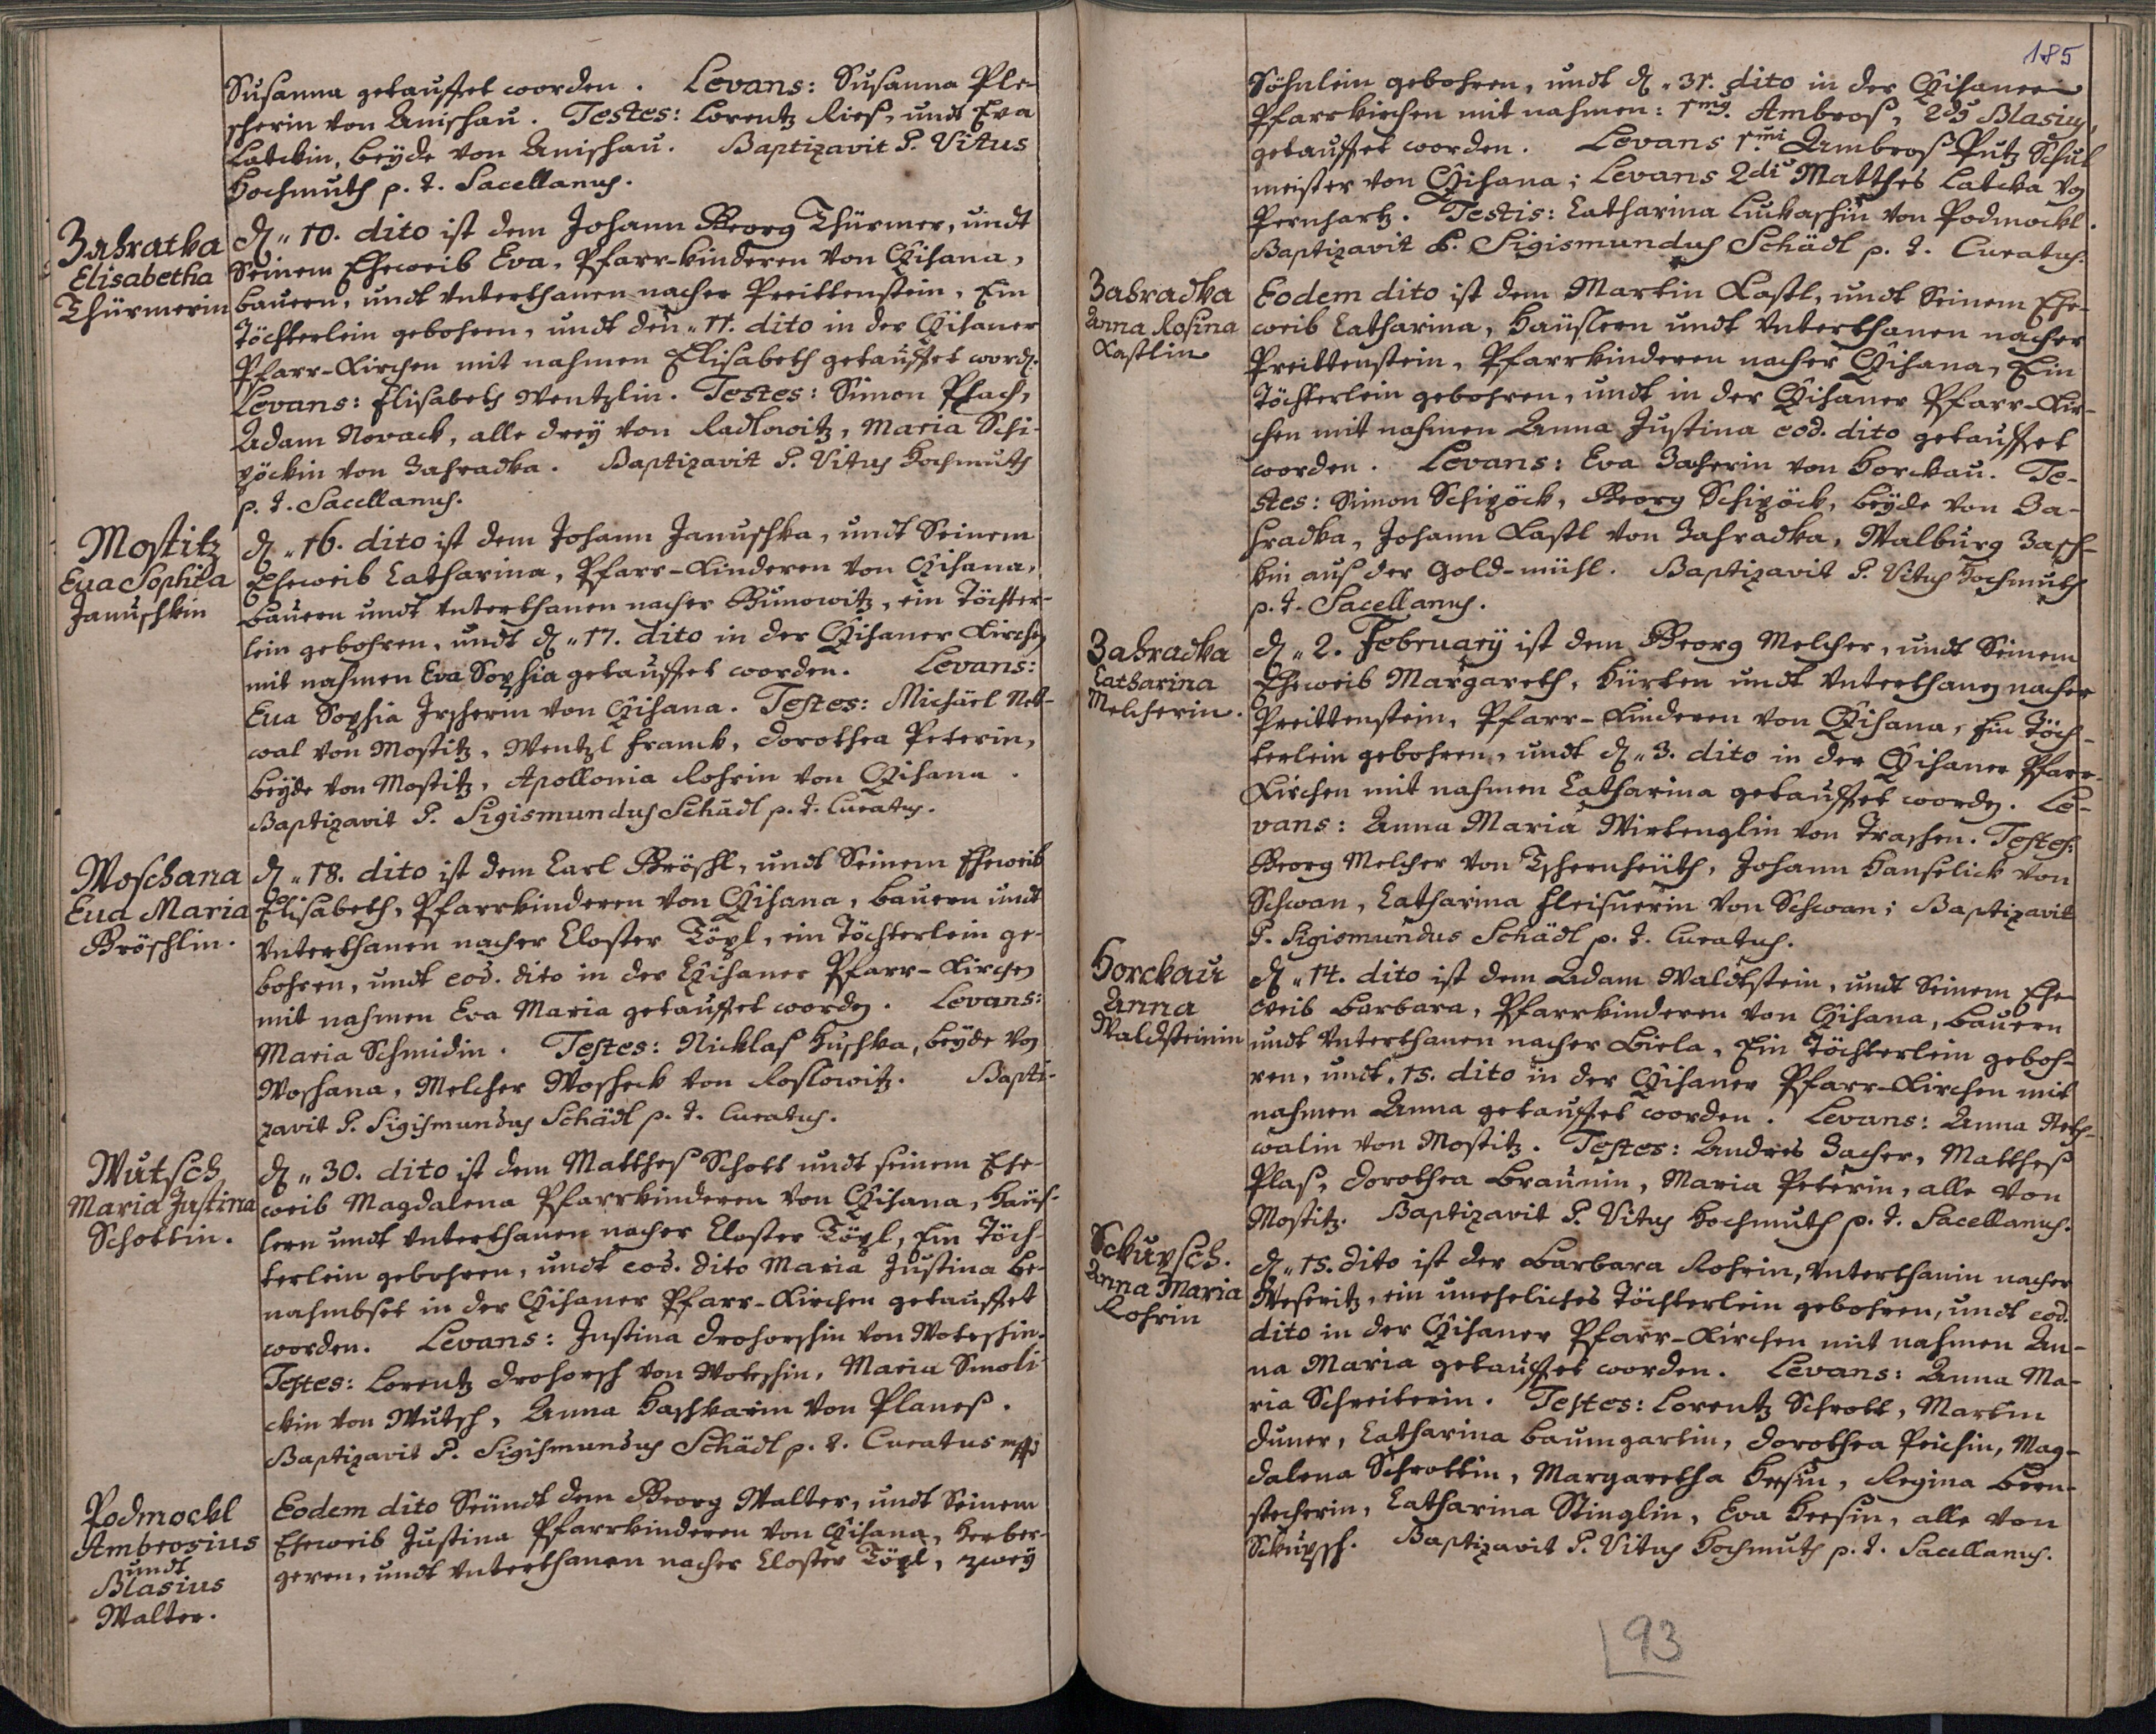 Susanna getauffet worden. Levans: Susanna Ple-
scherin von Anischau. Testes: Lorentz Ries, undt Eva
Latckin, beÿde von Anischau. Baptizavit P. Vitus
Hochmuth p. t. Sacellanus.
Zahratka
Elisabetha
Thürmerin
d. 10. dito ist dem Johann Georg Thürmer, undt
Seinem Eheweib Eva, Pfarr-kinderen von Qihana,
bauern, undt Unterthanen nacher Preittenstein, Ein
Töchterlein gebohren, undt den 11. dito in der Qihaner
Pfarr-Kirchen mit nahmen Elisabeth getauffet word.
Levans: Elisabeth Wentzlin. Testes: Simon Plach,
Adam Novack, alle dreÿ von Radlowitz, Maria Schi-
pöckin von Zahradka. Baptizavit P. Vitus Hochmuth
p. t. Sacellanus.
Mostitz
Eua Sophia
Januschkin
d. 16. dito ist dem Johann Januschka, undt Seinem
Eheweib Catharina, Pfarr-Kinderen von Qihana,
Bauern undt Unterthanen nacher Gunowitz, ein Töchter-
lein gebohren, undt d. 17. dito in der Qihaner Kirchen
mit nahmen Eva Sophia getauffet worden. Levans:
Eua Sophia Irscherin von Qihana. Testes: Michäel Net-
wal von Mostitz, Wentzl Franck, Dorothea Peterin,
beÿde von Mostitz, Apollonia Rohrin von Qihana.
Baptizavit P. Sigismundus Schädl p. t. Curatus.
Woschana
Eua Maria
Gröschlin.
d. 18. dito ist dem Carl Gröschl, undt Seinem Eheweib
Elisabeth, Pfarrkinderen von Qihana, bauern undt
Unterthanen nacher Closter Töpl, ein Töchterlein ge-
bohren, undt eod. dito in der Qihaner Pfarr-Kirchen
mit nahmen Eva Maria getauffet worden. Levans:
Maria Schmidin. Testes: Nicklaß Huschka, beÿde von
Woshana, Melcher Woscheck von Roslowitz. Bapti-
zavit P. Sigismundus Schädl p. t. Curatus.
Wutsch
Maria Justina
Schottin.
d. 30. dito ist dem Matthes Schott undt seinem Ehe-
weib Magdalena Pfarrkinderen von Qihana, Haüs-
lern undt Unterthanen nacher Closter Töpl, Ein Töch-
terlein gebohren, undt eod. dito Maria Justina be-
nahmbset in der Qihaner Pfarr-Kirchen getauffet
worden. Levans: Justina Drohorschin von Woteschin.
Testes: Lorentz Drohorsch von Woteschin, Maria Smoli-
ckin von Wutsch, Anna Haschkarin von Planes.
Baptizavit P. Sigismundus Schädl p. t. Curatus
Podmockl
Ambrosius
undt
Blasius
Walter.
Eodem dito Seÿndt dem Georg Walter, undt Seinem
Eheweib Justina Pfarrkinderen von Qihana, Herber-
geren, undt Unterthanen nacher Closter Töpl, zweÿ
185
Söhnlein gebohren, undt d. 31. dito in der Qihaner
Pfarrkirchen mit nahmen: 1mg. Ambros, 2dg Blasius,
getauffet worden. Levans 1mi Ambros Putz Schul
meister von Qihana; Levans 2di Matthes Latcka von
Pernhartz. Testis: Catharina Luckaschin von Podmockl.
Baptizavit P. Sigismundus Schädl p. t. Curatus.
Zahradka
Anna Rosina
Kastlin
Eodem dito ist dem Martin Kastl, undt Seinem Ehe-
weib Catharina, Haüslern undt Unterthanen nacher
Preittenstein, Pfarrkinderen nacher Qihana, Ein
Töchterlein gebohren, undt in der Qihaner Pfarr-Kir-
chen mit nahmen Anna Justina eod. dito getauffet
worden. Levans: Eva Zacherin von Horckau. Te-
stes: Simon Schipöck, Georg Schipöck, beÿde von Za-
hradka, Johann Kastl von Zahradka, Walburg Zasch-
kin aus der Gold-mühl. Baptizavit P. Vitus Hochmuth
p. t. Sacellanus.
Zahradka
Catharina
Melcherin.
d. 2. Februarÿ ist dem Georg Melcher, undt Seinem
Eheweib Margareth, Hürten undt Unterthanen nacher
Preittenstein, Pfarr-Kinderen von Qihana, Ein Töch-
terlein gebohren, undt d. 3. dito in der Qihaner Pfarr-
Kirchen mit nahmen Catharina getauffet worden. Le-
vans: Anna Maria Wirtenglin von Traschen. Testes:
Georg Melcher von Tschernheüth, Johann Hanselick von
Schwan, Catharina Fleisnerin von Schwan; Baptizavit
P. Sigismundus Schädl p. t. Curatus.
Horckau
Anna
Waldsteinin
d. 14. dito ist dem Adam Waldtstein, undt Seinem Ehe
weib Barbara, Pfarrkinderen von Qihana, bauern
undt Unterthanen nacher Biela, Ein Töchterlein geboh-
ren, undt. 15. dito in der Qihaner Pfarr-Kirchen mit
nahmen Anna getauffet worden. Levans: Anna Neth-
walin von Mostitz. Testes: Andres Zacher, Matthes
Plas, Dorothea Braunin, Maria Peterin, alle von
Mostitz. Baptizavit P. Vitus Hochmuth p. t. Sacellanus.
Skupsch.
Anna Maria
Rohrin
d. 15. dito ist der Barbara Rohrin, Unterthanin nacher
Weseritz, ein uneheliches Töchterlein gebohren, undt eod.
dito in der Qihaner Pfarr-Kirchen mit nahmen An-
na Maria getauffet worden. Levans: Anna Ma-
ria Schreiterin. Testes: Lorentz Schrott, Martin
Duner, Catharina Baumgartin, Dorothea Peichin, Mag-
dalena Schrottin, Margaretha Heesin, Regina Bern-
stecherin, Catharina Stinglin, Eva Heesin, alle von
Skupsch. Baptizavit P. Vitus Hochmuth p. t. Sacellanus.
93